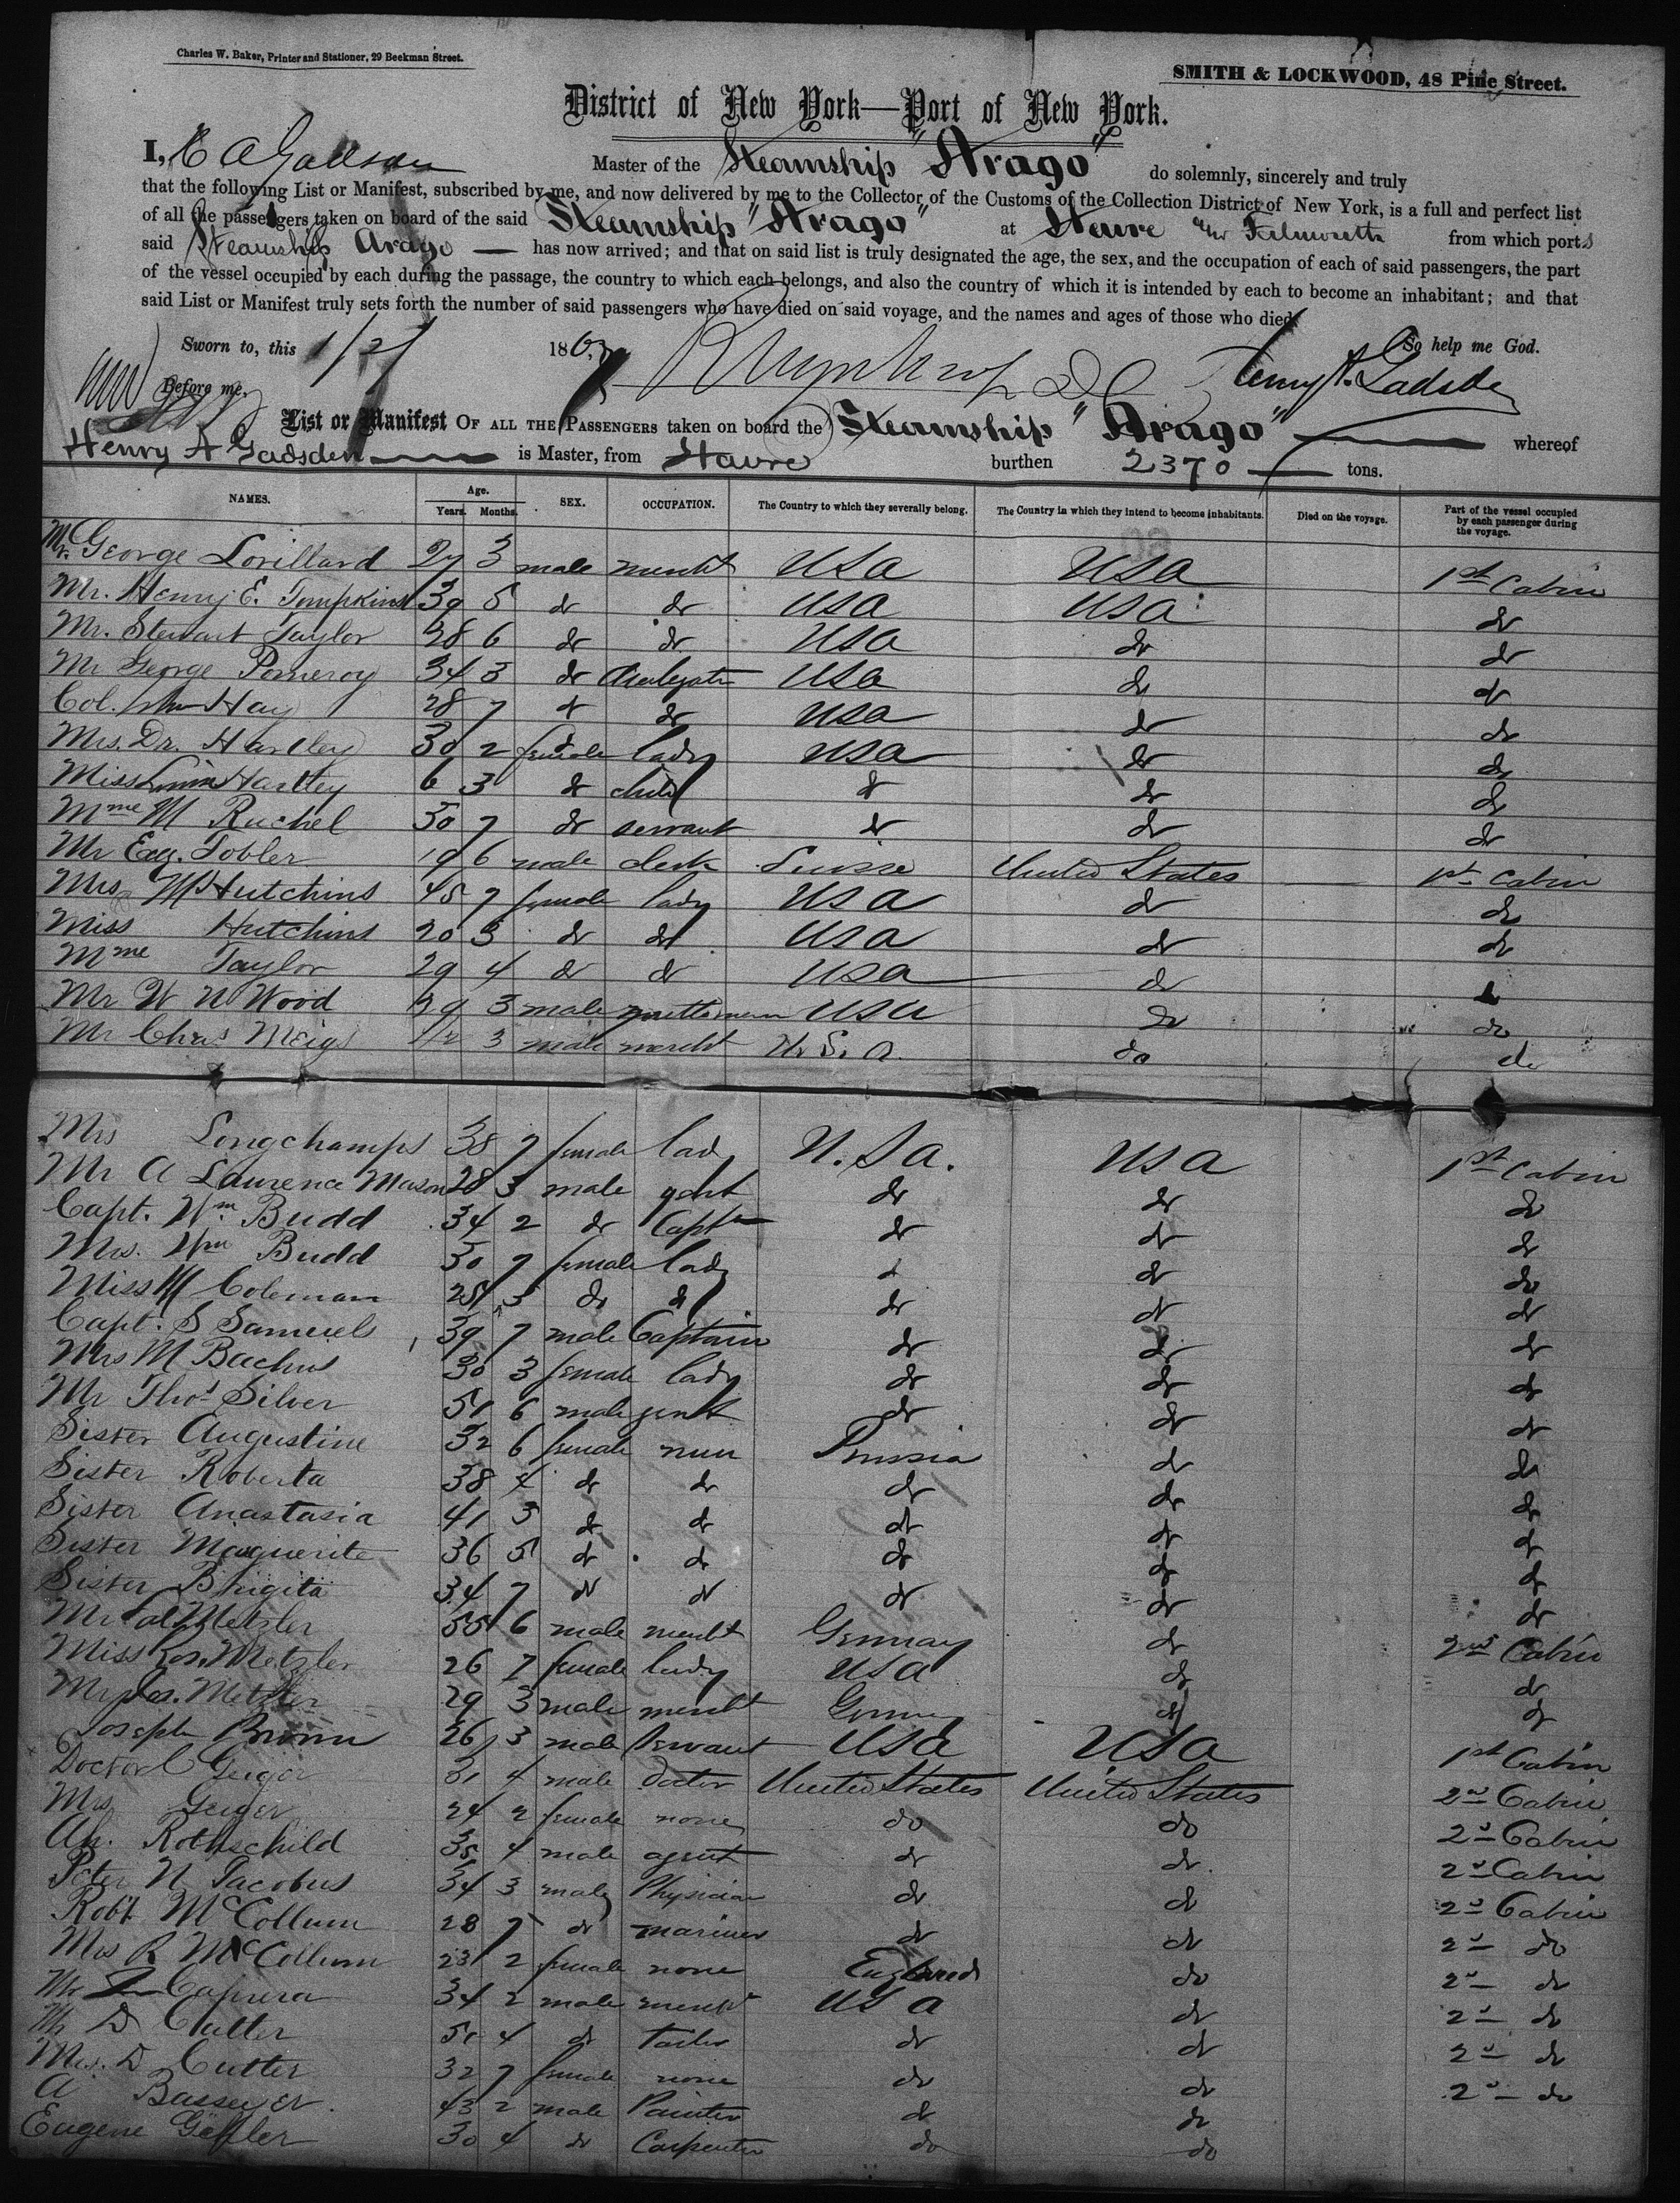 Charles W. Baker, Printer and Stationer, 29 Beekman Street.
SMITH & LOCKWOOD, 48 Pine Street.
District of New York—Port of New York.
I, Gadsden Master of the Steamship "Arago" do solemnly, sincerely and truly
that the following List or Manifest, subscribed by me, and now delivered by me to the Collector of the Customs of the Collection District of New York, is a full and perfect list
of all the passengers taken on board of the said Steamship "Arago" at Havre Falmouth from which ports
said Steamship Arago — has now arrived; and that on said list is truly designated the age, the sex, and the occupation of each of said passengers, the part
of the vessel occupied by each during the passage, the country to which each belongs, and also the country of which it is intended by each to become an inhabitant; and that
said List or Manifest truly sets forth the number of said passengers who have died on said voyage, and the names and ages of those who died.
Sworn to, this 186 So help me God.
Before me, Henry A. Gadsden
List or Manifest OF ALL THE PASSENGERS taken on board the Steamship "Arago" — whereof
Henry A Gadsden — is Master, from Havre burthen 2370 — tons.
NAMES. Age. Years. Months. SEX. OCCUPATION. The Country to which they severally belong. The Country in which they intend to become inhabitants. Died on the voyage. Part of the vessel occupied by each passenger during the voyage.
Mr. George Lorillard 27 3 male mercht USA USA 1st Cabin
Mr. Henry E. Tompkins 39 5 do do USA USA do
Mr. Stewart Taylor 28 6 do do USA do do
Mr George Pomeroy 34 3 do USA do do
Col. Hay 28 7 do do USA do do
Mrs. Dr. Hartley 30 2 female lady USA do do
Miss Hartley 6 3 do child do do do
Mme M Ruchel 30 7 do servant do do do
Mr Eug. Tobler 19 6 male clerk Suisse United States — 1st Cabin
Mrs M Hutchins 45 7 female lady USA do do
Miss Hutchins 20 3 do do USA do do
Mme Taylor 29 4 do do USA do do
Mr W N Wood 39 3 male USA do do
Mr Chas Meigs 3 male mercht U.S.A. do do
Mrs Longchamps 38 7 female lady U.S.A. USA 1st Cabin
Mr A Laurence Mason 28 3 male gent do do do
Capt. Wm Budd 34 2 do Captn do do do
Mrs. Wm Budd 30 7 female lady do do do
Miss M Coleman 25 3 do do do do do
Capt. S Samuels 39 7 male Captain do do do
Mrs M Bachus 30 3 female lady do do do
Mr Thos Silver 51 6 male gent do do do
Sister Augustine 32 6 female nun Prussia do do
Sister Roberta 38 4 do do do do do
Sister Anastasia 41 3 do do do do do
Sister Marguerite 36 5 do do do do do
Sister Brigita 34 7 do do do do do
Mr Metzler 55 6 male mercht Germany do 2nd Cabin
Miss Ros. Metzler 26 7 female lady USA do do
Mr Jos. Metzler 29 3 male mercht Germany do do
Joseph Brown 26 3 male Servant USA USA 1st Cabin
Doctor Geiger 31 4 male doctor United States United States 2nd Cabin
Mrs Geiger 24 2 female none do do 2d Cabin
Ah. Rothschild 35 4 male agent do do 2d Cabin
Peter N Jacobus 34 3 male Physician do do 2d Cabin
Robt McCollum 28 7 do mariner do do 2d do
Mrs R McCollum 23 2 female none England do 2d do
Mr Caprera 34 2 male mercht USA do 2d do
Mr D Cutter 51 4 do tailor do do 2d do
Mrs. D Cutter 32 7 female none do do 2d do
A 43 2 male Painter do do
Eugene 30 4 do Carpenter do do